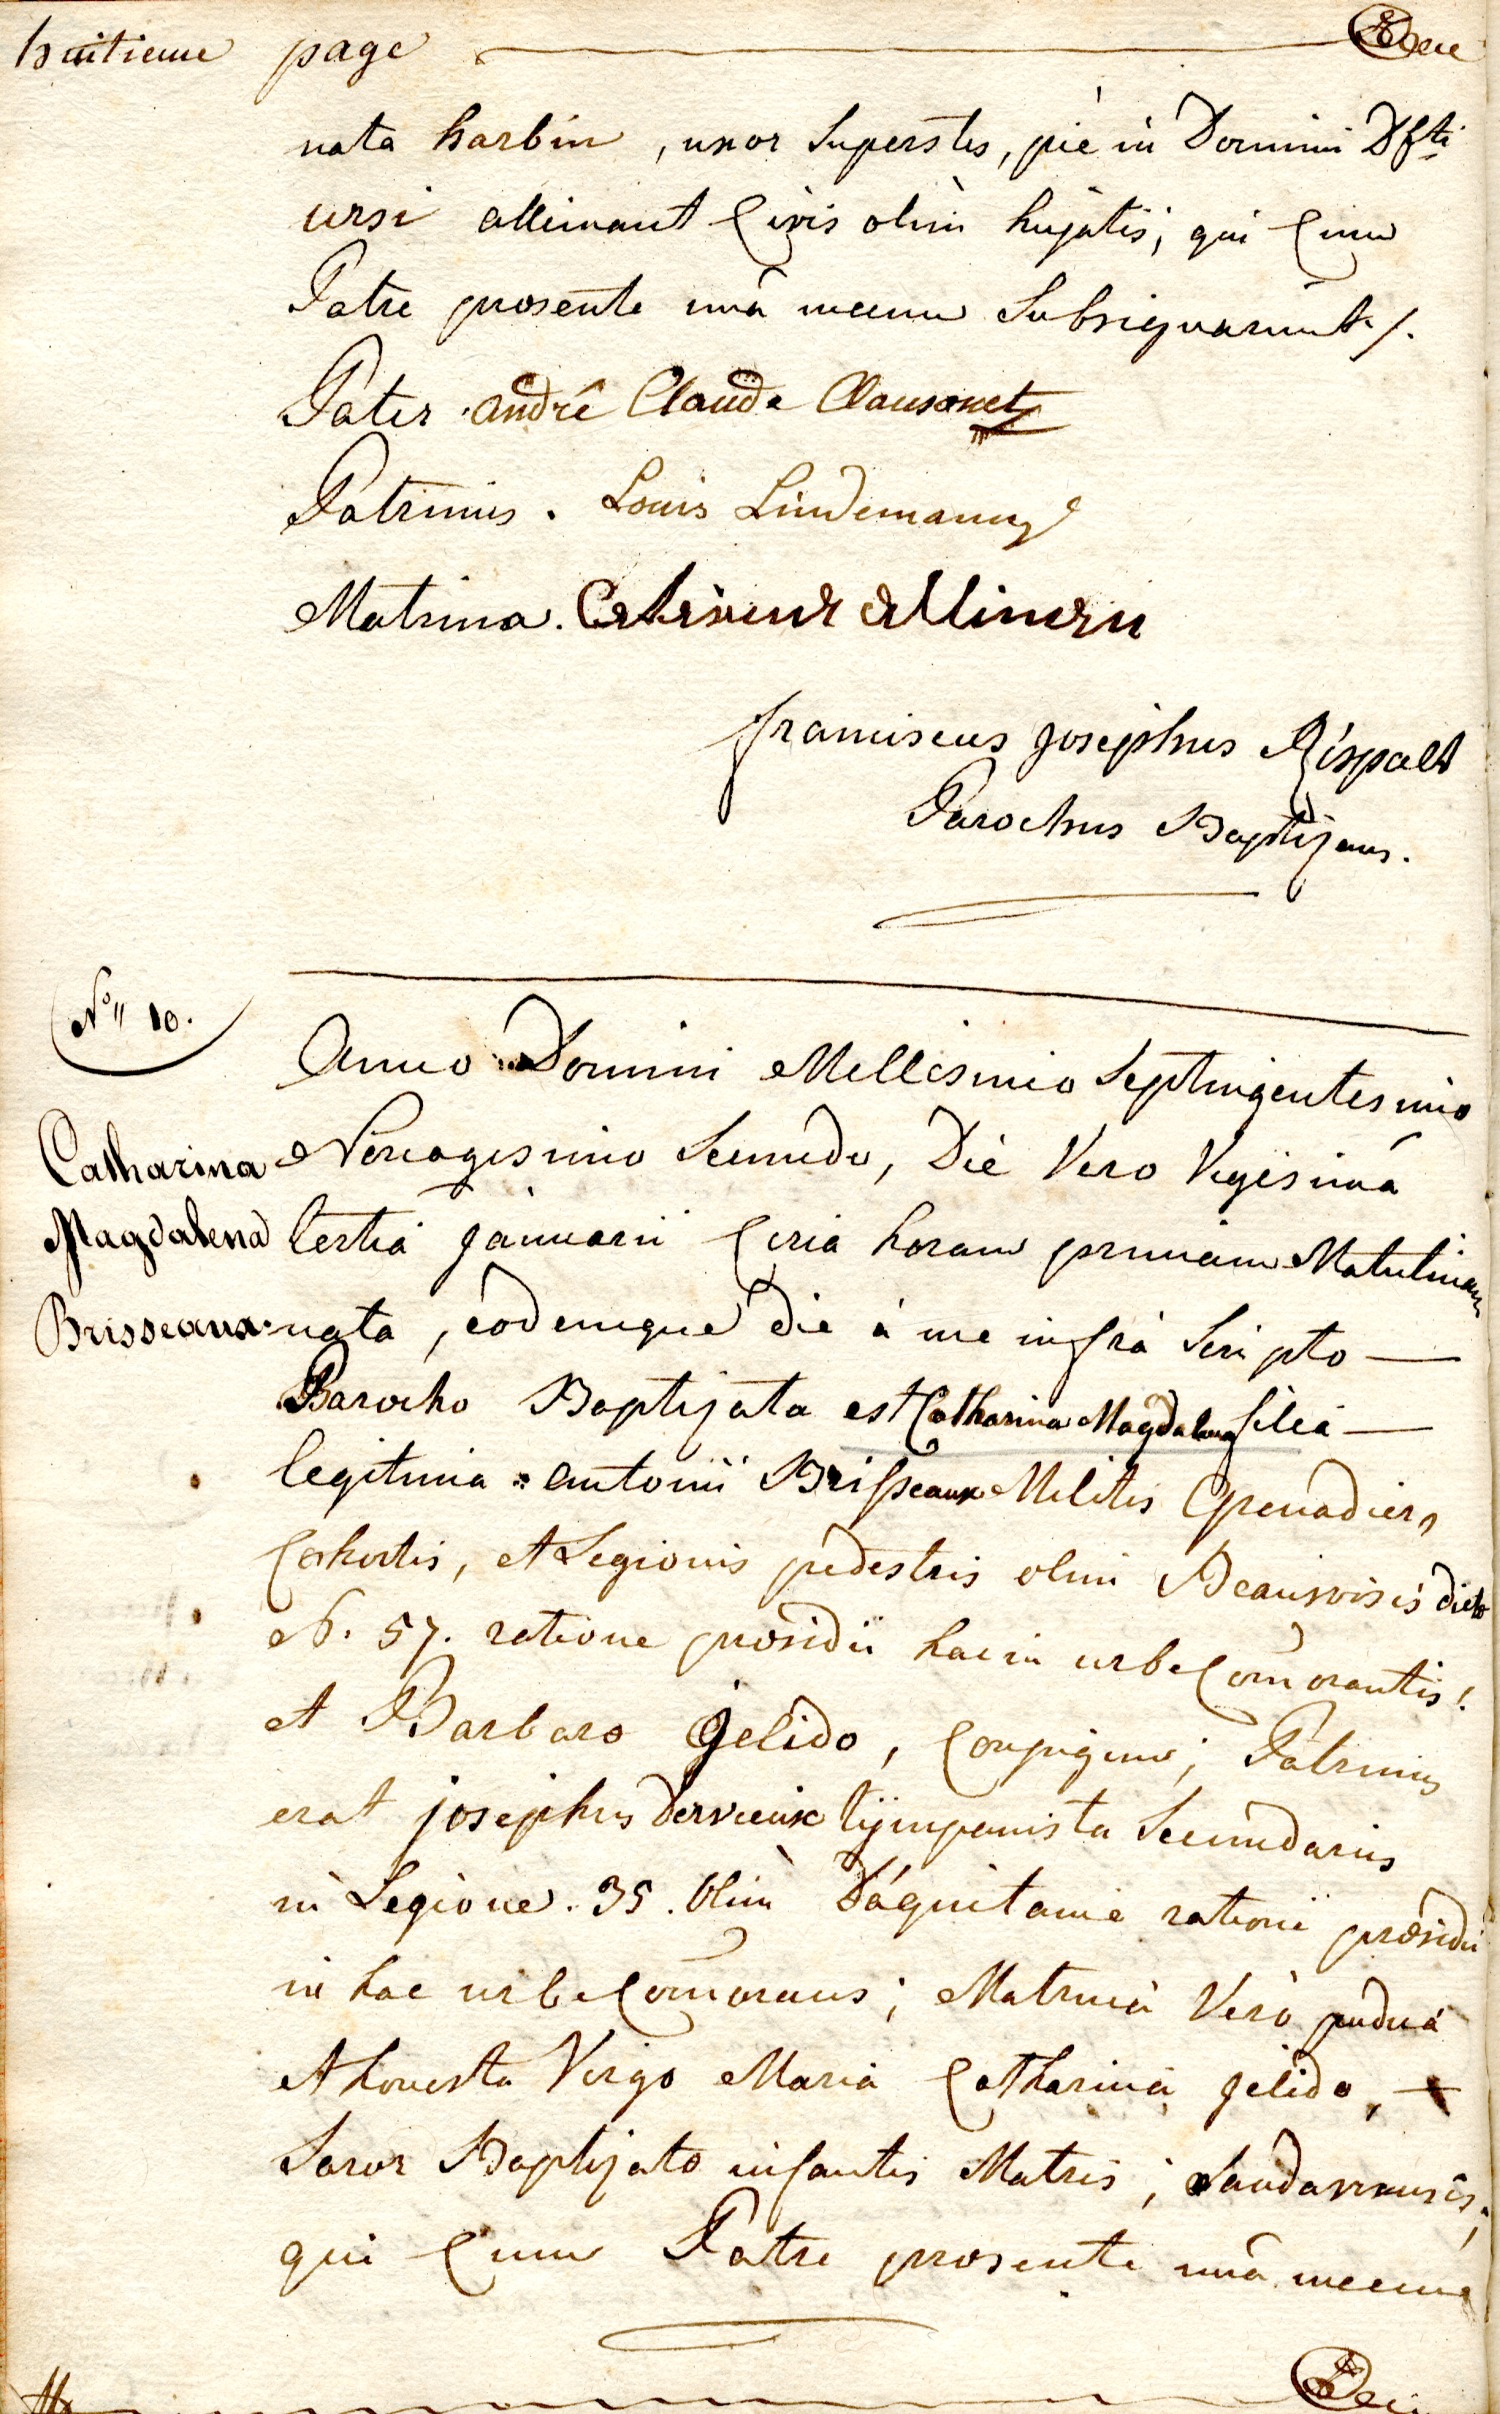 huitieme page
nata harbin, uxor Superstes, piè in Domini Dfti
ursi allimant Civis olim hujatis, qui Cum
Patre prosente unà mecum Subsignarunt /.
Pater. andrê Claude Clausonet
Patrinus. Louis Lindemann
Matrina.
franciscus josephus Rispalt
Parochus Baptizans.
N° 10.
Anno Domini Mellesimo Septingentesimo
Catharina
Magdalena
Brisseaux.
Nonagesimo Secundo, Diè Vero Vigesimà
tertiá januarii Circa horam primam Matutinam
nata, eodemque die à me infrà Scripto
Parocho Baptizata est Catharina Magdalena filia
legitima antonii Brisseaux Militis Grenadier,
Cohortis, et Legionis pedestris olim Beauvoisis dicto
N. 57. ratione prosidii hac in urbe Com̄orantis!
et Barbaro Gelido, Conjugum; Patrinus
erat josephus Dervieux tijmpanista Secundarius
in Legione. 35. Olim D'aquitanie rationi prosidii
in hac urbe Com̄orans; Matrina Verò pudica
et honesta Virgo Maria Catharina gelido,
Soror Baptizato infantis Matris; Landaviensis;
qui Cum Patre prosente unà mecum